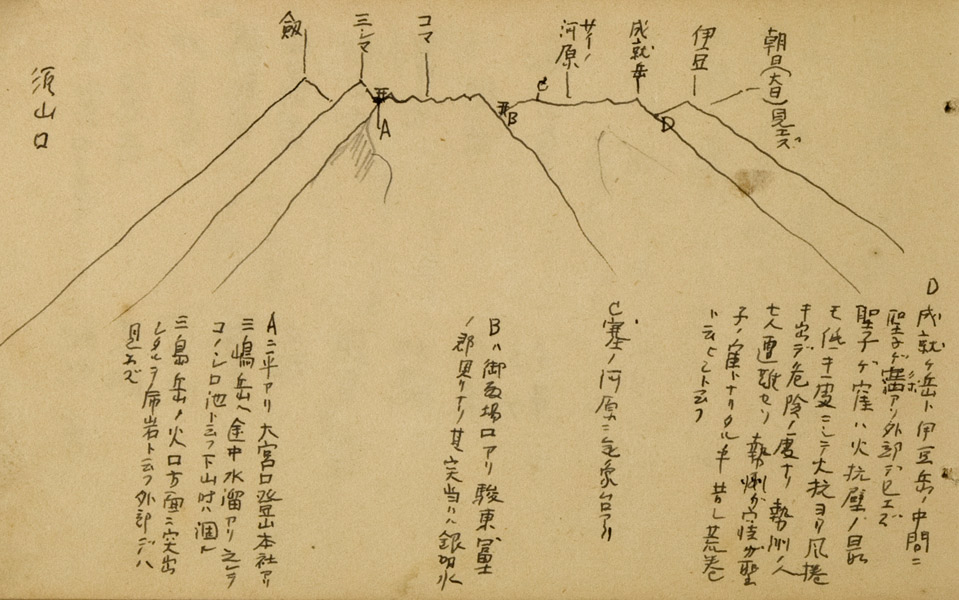 朝日(大日)見エズ
伊豆
成就岳
サイノ
河原
コマ
三シマ
劔
須山口
A
B
C
D
D 成就ヶ岳ト伊豆岳ノ中間ニ
聖子ヶ窪アリ外部デ見エズ
聖子ヶ窪ハ火抗壁ノ最
モ低キ處ニシテ火抗ヨリ風捲
キ出デ危険ノ處ナリ 勢州ノ人
七人遭難セリ 勢州が
子ノ窪トナリタル 昔シ荒巻
ト云ヒシトニフ
C 塞ノ河原ニ気象台アリ
B ハ御殿場口アリ 駿東富士
ノ郡界ナリ其突当ハ銀明水
A ニ平アリ 大宮口登山本社アリ
三嶋岳ヘ金中水溜アリ 之レヲ
コノシロ池ト云フ下山時ハ涸ル
三島岳ノ火口方面ニ突出
シタルヲ 岩ト云フ外部デハ
見エズ